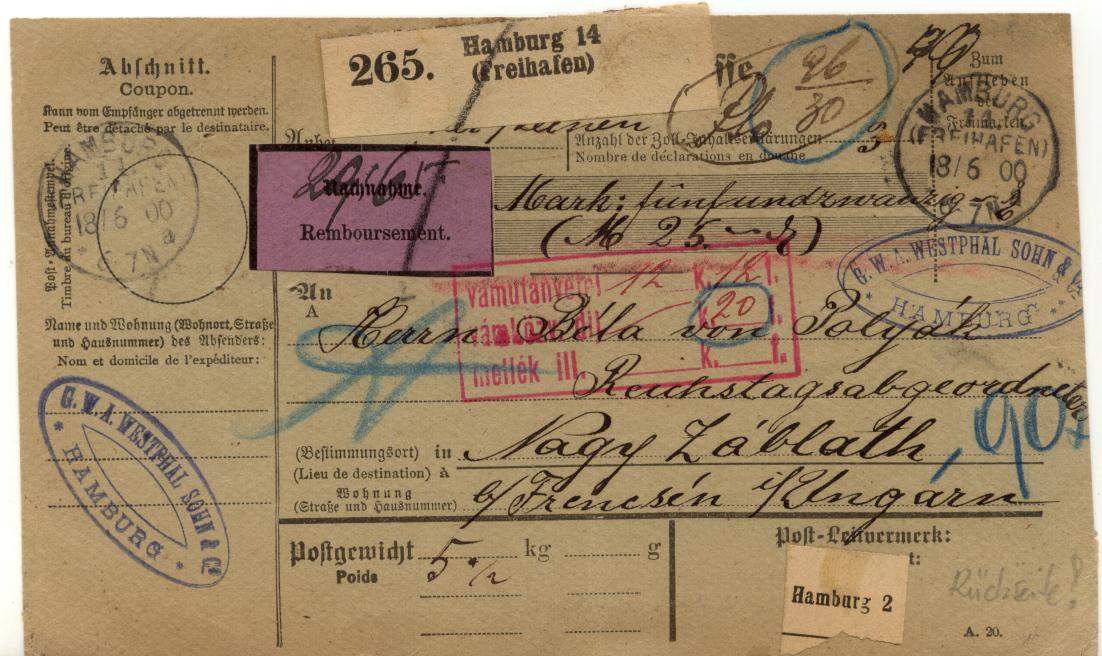 265.
Hamburg 14
(Freihafen)
Abschnitt.
Coupon.
Kann vom Empfänger abgetrennt werden.
Peut être détaché par le destinataire.
HAMBURG
1
(FREIHAFEN)
18/6 00
6-7N a
Post-Annahmestempel.
Timbre du bureau d'origine.
Name und Wohnung (Wohnort, Straße
und Hausnummer) des Absenders:
Nom et domicile de l'expéditeur:
G. W. A. WESTPHAL SOHN & Co
* HAMBURG *
26
30
Zum
Aufkleben
der
Freimarken
HAMBURG
1
(FREIHAFEN)
18/6 00
6-7N a
Anzahl der Zoll-Inhaltserklärungen
Nombre de déclarations en douane
Nachnahme.
Remboursement.
Mark: fünfundzwanzig
(M 25.-)
G. W. A. WESTPHAL SOHN & Co
* HAMBURG *
An
A
12 k. 12 f.
20
mellék ill. k. f.
Herrn Béla von
Reichstagsabgeordneter
(Bestimmungsort) in Nagy Záblath
(Lieu de destination) à
Wohnung
(Straße und Hausnummer)
b/ Trencsén i/Ungarn
90
Postgewicht 5 1/2 kg g
Poids
Post-Leitvermerk:
Hamburg 2
Rückseite!
A. 20.